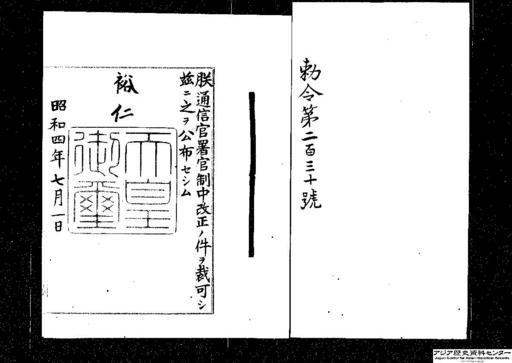 勅令第二百三十號
朕通信官署官制中改正ノ件ヲ裁可シ
玆ニ之ヲ公布セシム
裕仁
天皇御璽
昭和四年七月一日
アジア歴史資料センター
Japan Center for Asian Historical Records